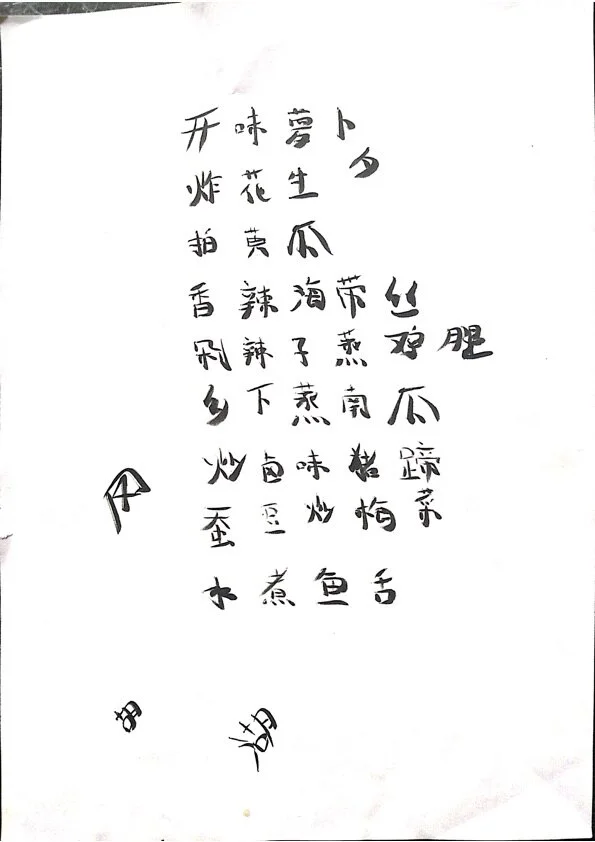 开味萝卜
夕
炸花生
拍黄瓜
香辣海带丝
剁辣子蒸鸡胆
乡下蒸南瓜
炒卤味猪蹄
蚕豆炒梅菜
水煮鱼舌
胡
湖